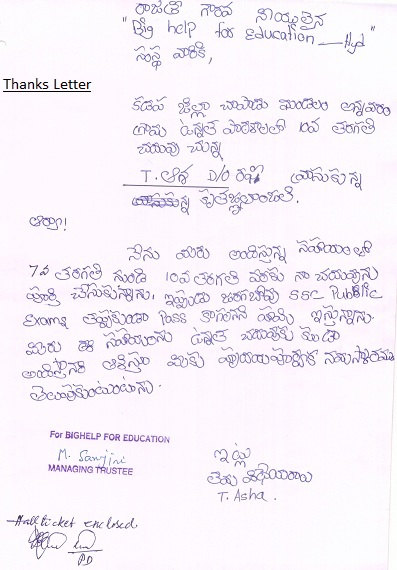 గౌరవ నీయులైన
"Big help for Education — Hyd"
సంస్థ వారికి,
Thanks Letter
కడప జిల్లా చాపాడు మండలం అన్నవరం
గ్రామ ఉన్నత పాఠశాలలో 10వ తరగతి
చదువు చున్న
T. ఆశ D/O వ్రాసుకున్న
కృతజ్ఞతాంజలి.
ఆర్యా!
నేను మీరు అందిస్తున్న సహాయంతో
7వ తరగతి నుండి 10వ తరగతి వరకు నా చదువును
పూర్తి చేసుకున్నాను. ఇప్పుడు జరగబోవు SSC Public
Exams తప్పకుండా Pass కాగలనని హామి ఇస్తున్నాను.
మీరు ఈ సహాయంను ఉన్నత చదువుకు కూడా
అందిస్తారని ఆశిస్తూ మీకు హృదయపూర్వక నమస్కారములు
తెలుపుకుంటుంటున్నాను.
For BIGHELP FOR EDUCATION
M. Sarojini
MANAGING TRUSTEE
ఇట్లు
తమ విధేయురాలు
T. Asha.
—Hall ticket enclosed
PD